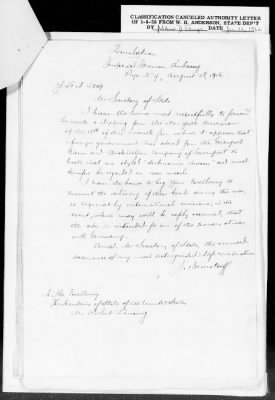 CLASSIFICATION CANCELED AUTHORITY LETTER
OF 1-8-58 FROM W. H. ANDERSON, STATE DEP'T
BY DATE
Translation
Imperial German Embassy
Rye, N.Y., August 18, 1916.
Mr. Secretary of State:
I have the honor most respectfully to forward
herewith a clipping from the New York American
of the of this month from which it appears that
a foreign government has asked from the
and Company of
boats that are styled "submarine chasers" and must
therefore be regarded as war vessels.
I have the honor to beg your Excellency to
prevent the delivery of these boats during the war,
as required by international decisions, in the
event, which may well be safely assumed, that
the are intended for one of the powers at war
with Germany.
Accept, Mr. Secretary of State, the renewed
assurance of my most distinguished high consideration
J. Bernstorff
To His Excellency
The Secretary of State of the United States
Mr. Robert Lansing